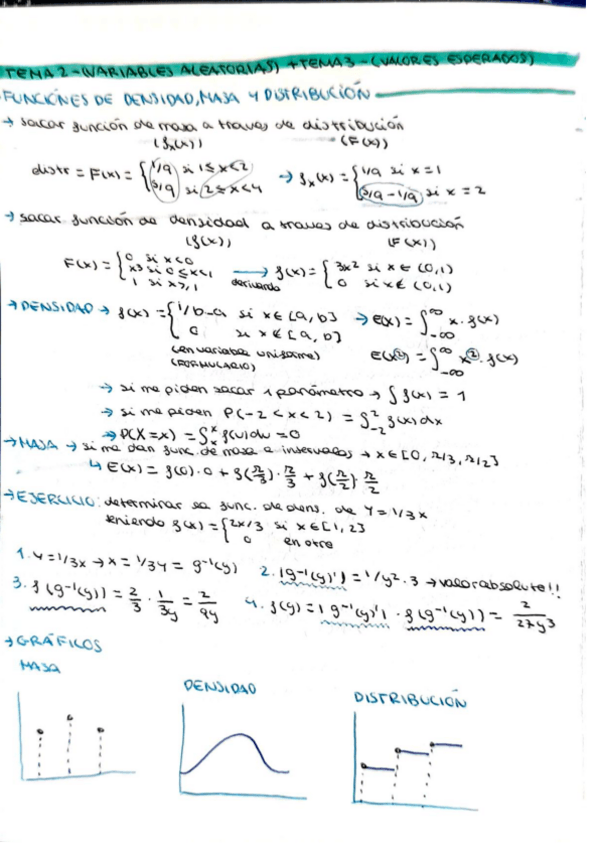 TEMA 2 - (VARIABLES ALEATORIAS) + TEMA 3 - (VALORES ESPERADOS)
FUNCIONES DE DENSIDAD, MASA Y DISTRIBUCIÓN
→ sacar función de masa a traves de distribución
(fx(x)) (F(x))
distr = F(x) = { 1/9 si 1≤x<2 → fx(x) = { 1/9 si x=1
5/9 si 2≤x<4 5/9 - 1/9 si x=2
→ sacar función de densidad a traves de distribución
(f(x)) (F(x))
F(x) = { 0 si x<0
x³ si 0≤x<1 → derivando f(x) = { 3x² si x∈(0,1)
1 si x≥1 0 si x∉(0,1)
→ DENSIDAD → f(x) = { 1/b-a si x∈[a,b] → E(x) = ∫-∞^∞ x·f(x)
0 si x∉[a,b]
(en variables uniforme) E(x²) = ∫-∞^∞ x²·f(x)
(FORMULARIO)
→ si me piden sacar 1 parámetro → ∫f(x) = 1
→ si me piden P(-2<x<2) = ∫-2^2 f(x)dx
→ P(X=x) = ∫x^x f(u)du = 0
→ MASA → si me dan func. de masa a intervalos → x∈[0, π/3, π/2]
↳ E(x) = f(0)·0 + f(π/3)·π/3 + f(π/2)·π/2
→ EJERCICIO: determinar la func. de dens. de Y = 1/3x
teniendo f(x) = { 2x/3 si x∈[1,2]
0 en otro
1. Y = 1/3x → x = 1/3Y = g⁻¹(y) 2. |g⁻¹(y)'| = 1/y²·3 → valor absoluto!!
3. f(g⁻¹(y)) = 2/3 · 1/3y = 2/9y 4. f(y) = |g⁻¹(y)'| · f(g⁻¹(y)) = 2/27y³
→ GRÁFICOS
MASA
DENSIDAD
DISTRIBUCIÓN